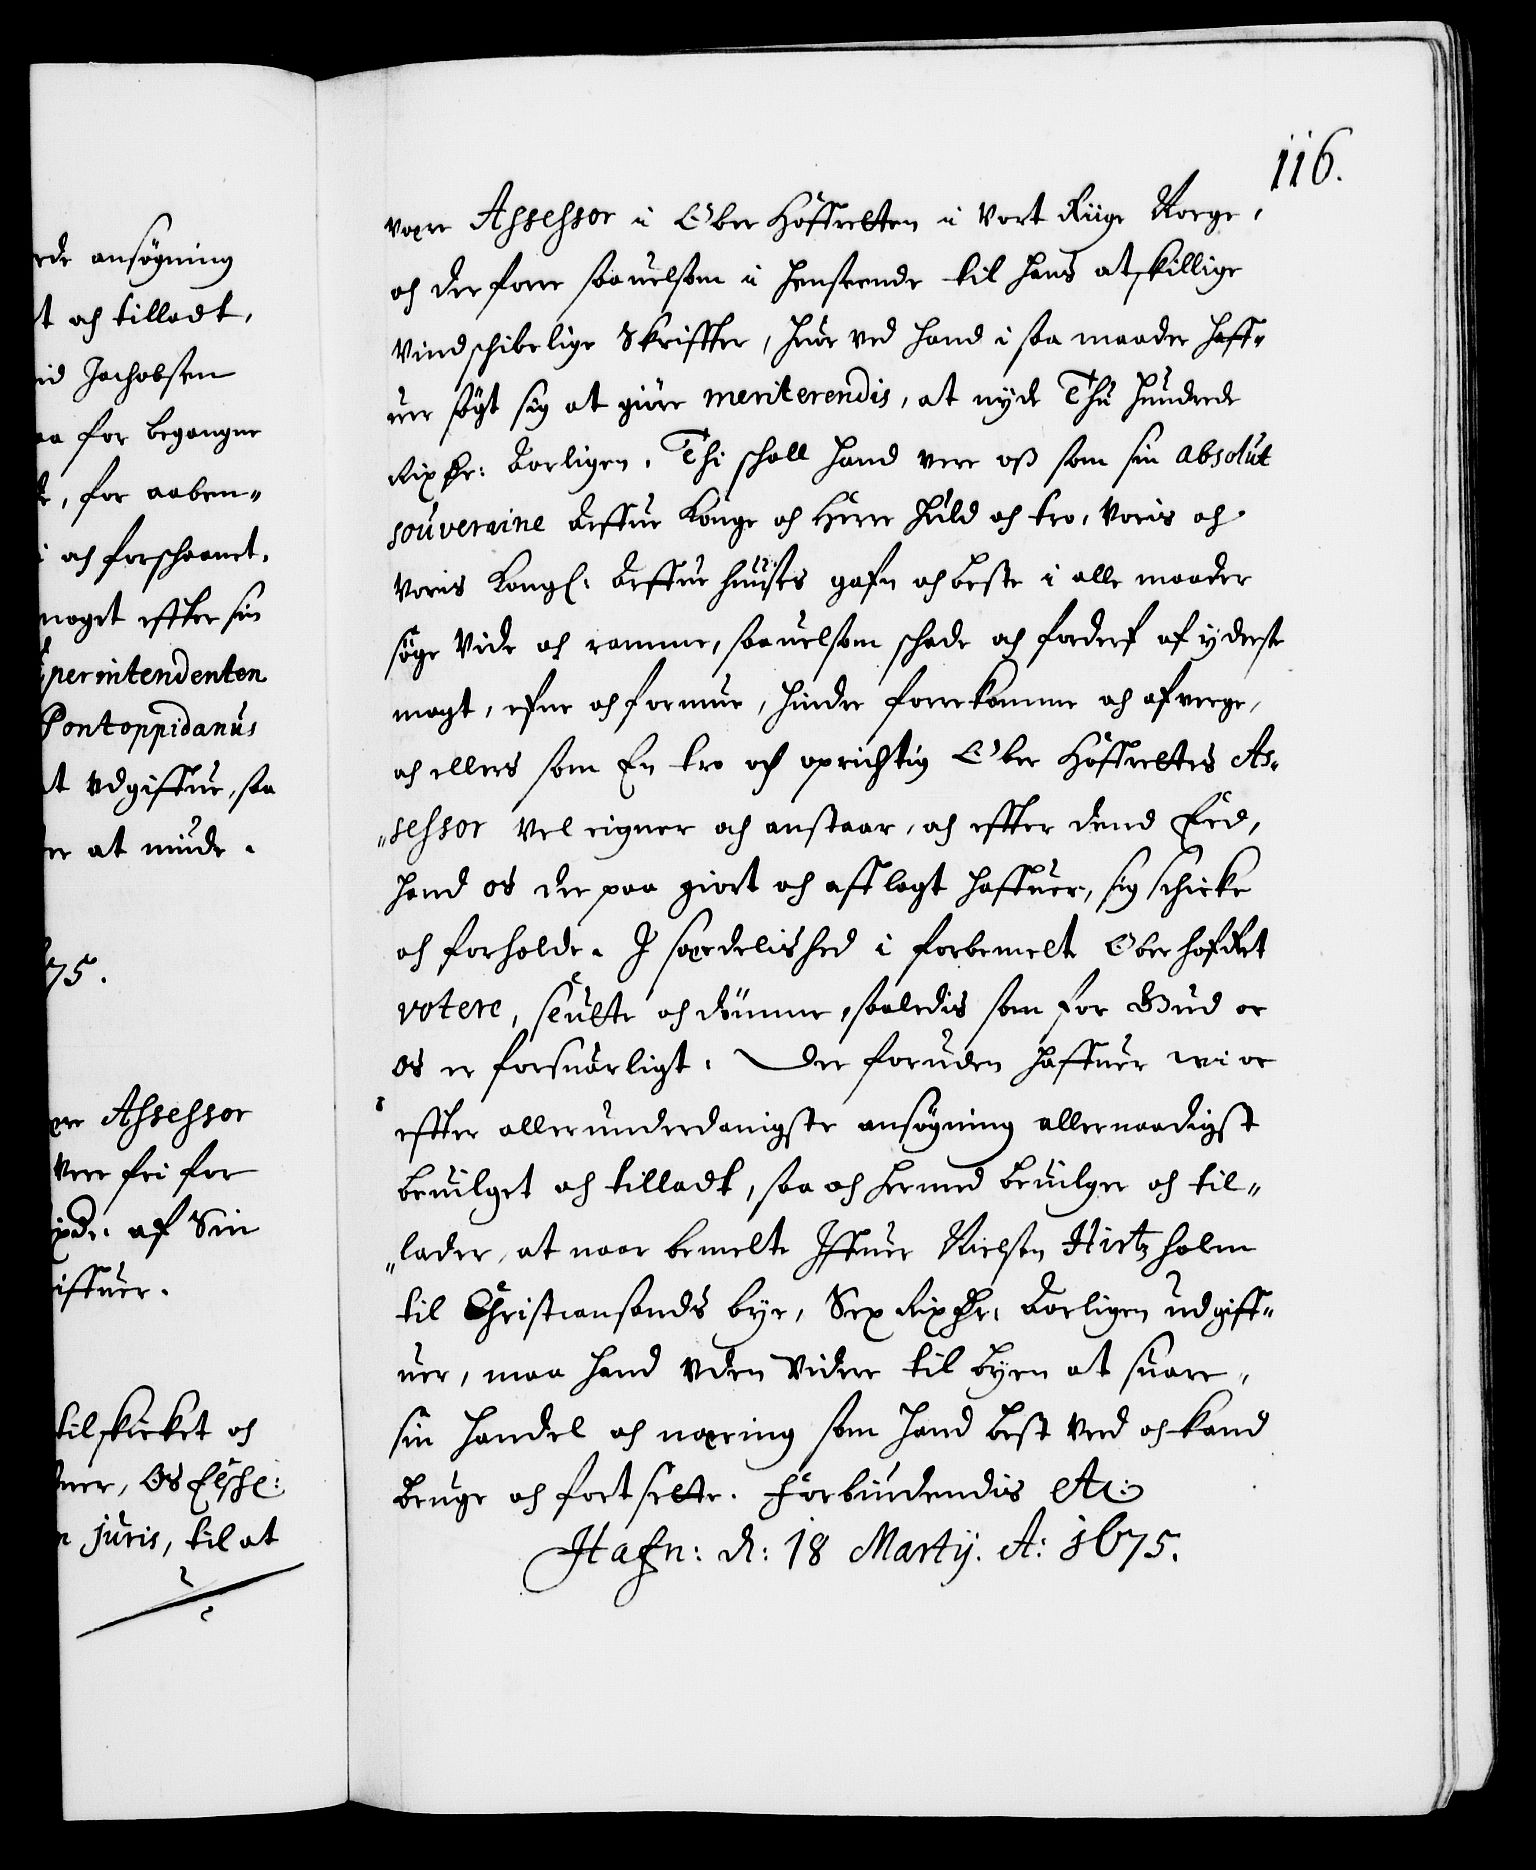 rde ansøgning
t och tilladt,
id Jachobsen
aa for begangne
, for aaben„
i och forschaanet.
noget effter sin
perintendenten
Pontoppidanus
t udgiffuer, saa
er at niude.
75.
re Assessor
Vere fri for
ixdr. af Sin
iffuer.
tilskicket och
uer, Os Elsche:
juris, til at
116.
være Assessor i Ober Hoffretten i Vort Riige Norge,
och derforre saauelsom i henseende til hans atskillige
Vindschibelige Skriffter, huor ved hand i saa maader haff„
uer søgt sig at giøre meriterendis, at nyde Thu hundrede
Rixdr: Aarligen. Thi schall hand vere oss som sin absolut
souveraine Arffue Konge och Herre huld och tro, Voris och
Voris Kongl: Arffue huuses gafn och beste i alle maader
søge Vide och ramme, saauelsom schade och forderf af yderste
magt, efne och formue, hindre forrekomme och afverge,
och ellers som En tro och oprichtig Ober Hoffrettes As„
„sessor Vel eigner och anstaar, och effter dend Eed,
hand os der paa giort och afflagt haffuer, sig schicke
och forholde. I særdelished i forbemelte Ober hofret
votere, slutte och dømme, saaledis som for Gud oc
os er forsuarligt. Der foruden haffuer wi oc
effter allerunderdanigste ansøgning allernaadigst
beuilget och tilladt, saa och hermed beuilger och til„
„lader, at naar bemelte Iffuer Nielsen Hirtzholm
til Christiansands bye, Sex Rixdr: Aarligen udgiff„
uer, maa hand Uden Videre til byen at suare,
sin handel och næring som hand best Ved och kand
bruge och fortsette. Forbiudendis Etc:
Hafn: d: 18 Martij. A: 1675.